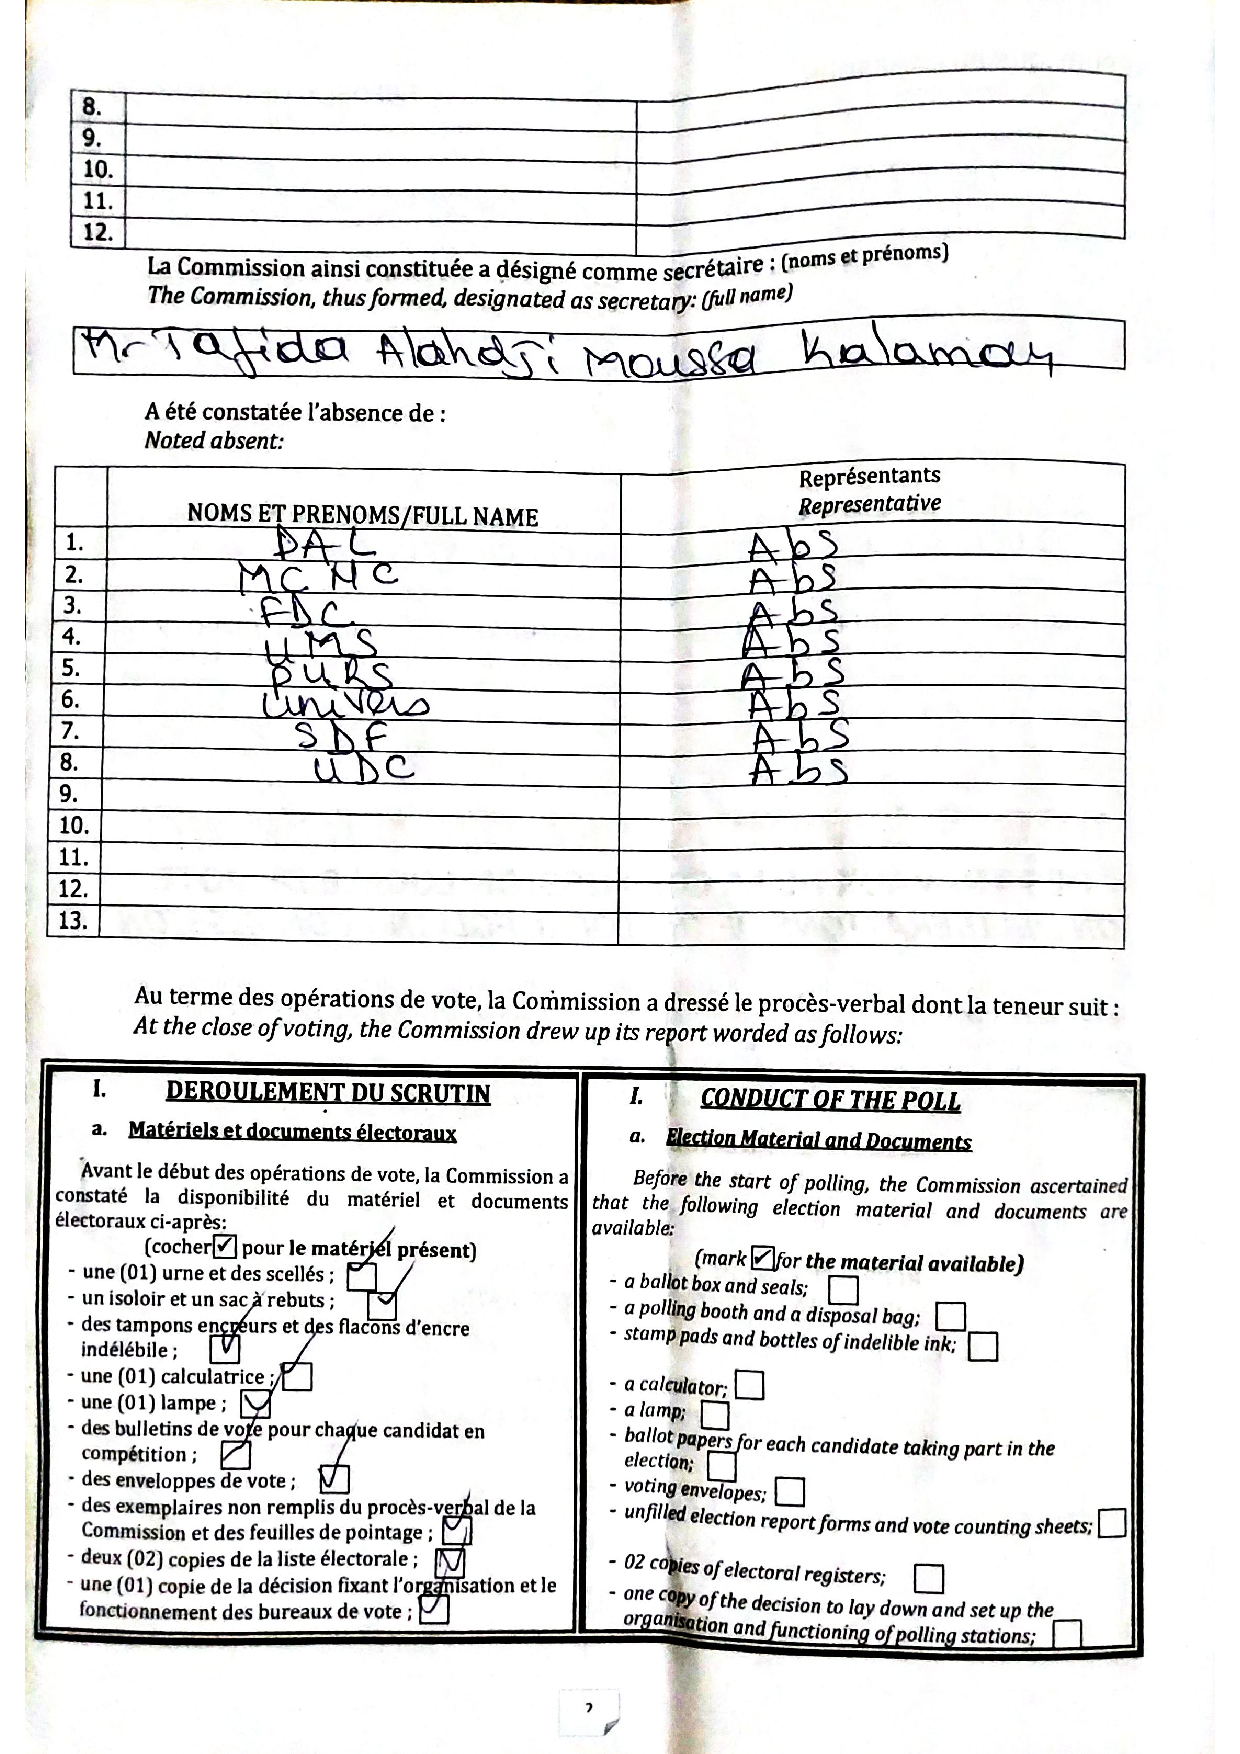 8.
9.
10.
11.
12.
La Commission ainsi constituée a désigné comme secrétaire : (noms et prénoms)
The Commission, thus formed, designated as secretary: (full name)
Mr Tafida Alahdji Moussa Kalamou
A été constatée l'absence de :
Noted absent:
NOMS ET PRENOMS/FULL NAME
Représentants
Representative
1. PAL Abs
2. MCNC Abs
3. FDC Abs
4. UMS Abs
5. PURS Abs
6. Univers Abs
7. SDF Abs
8. UDC Abs
9.
10.
11.
12.
13.
Au terme des opérations de vote, la Commission a dressé le procès-verbal dont la teneur suit :
At the close of voting, the Commission drew up its report worded as follows:
I. DEROULEMENT DU SCRUTIN
a. Matériels et documents électoraux
Avant le début des opérations de vote, la Commission a
constaté la disponibilité du matériel et documents
électoraux ci-après:
(cocher ☑ pour le matériel présent)
- une (01) urne et des scellés ; ☑
- un isoloir et un sac à rebuts ; ☑
- des tampons encreurs et des flacons d'encre
indélébile ; ☑
- une (01) calculatrice ; ☑
- une (01) lampe ; ☑
- des bulletins de vote pour chaque candidat en
compétition ; ☑
- des enveloppes de vote ; ☑
- des exemplaires non remplis du procès-verbal de la
Commission et des feuilles de pointage ; ☑
- deux (02) copies de la liste électorale ; ☑
- une (01) copie de la décision fixant l'organisation et le
fonctionnement des bureaux de vote ; ☑
I. CONDUCT OF THE POLL
a. Election Material and Documents
Before the start of polling, the Commission ascertained
that the following election material and documents are
available:
(mark ☑ for the material available)
- a ballot box and seals; ☐
- a polling booth and a disposal bag; ☐
- stamp pads and bottles of indelible ink; ☐
- a calculator; ☐
- a lamp; ☐
- ballot papers for each candidate taking part in the
election; ☐
- voting envelopes; ☐
- unfilled election report forms and vote counting sheets; ☐
- 02 copies of electoral registers; ☐
- one copy of the decision to lay down and set up the
organisation and functioning of polling stations; ☐
2